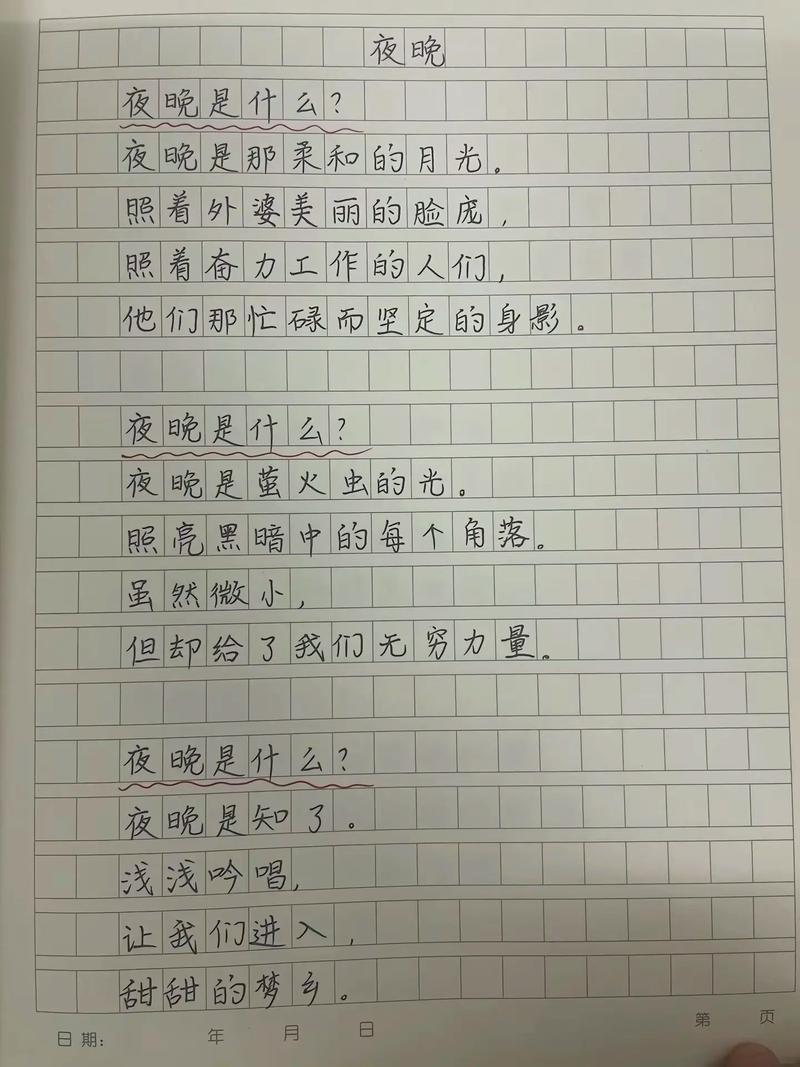 夜晚
夜晚是什么？
夜晚是那柔和的月光。
照着外婆美丽的脸庞，
照着奋力工作的人们，
他们那忙碌而坚定的身影。
夜晚是什么？
夜晚是萤火虫的光。
照亮黑暗中的每个角落。
虽然微小，
但却给了我们无穷力量。
夜晚是什么？
夜晚是知了。
浅浅吟唱，
让我们进入，
甜甜的梦乡。
日期： 年 月 日 第 页